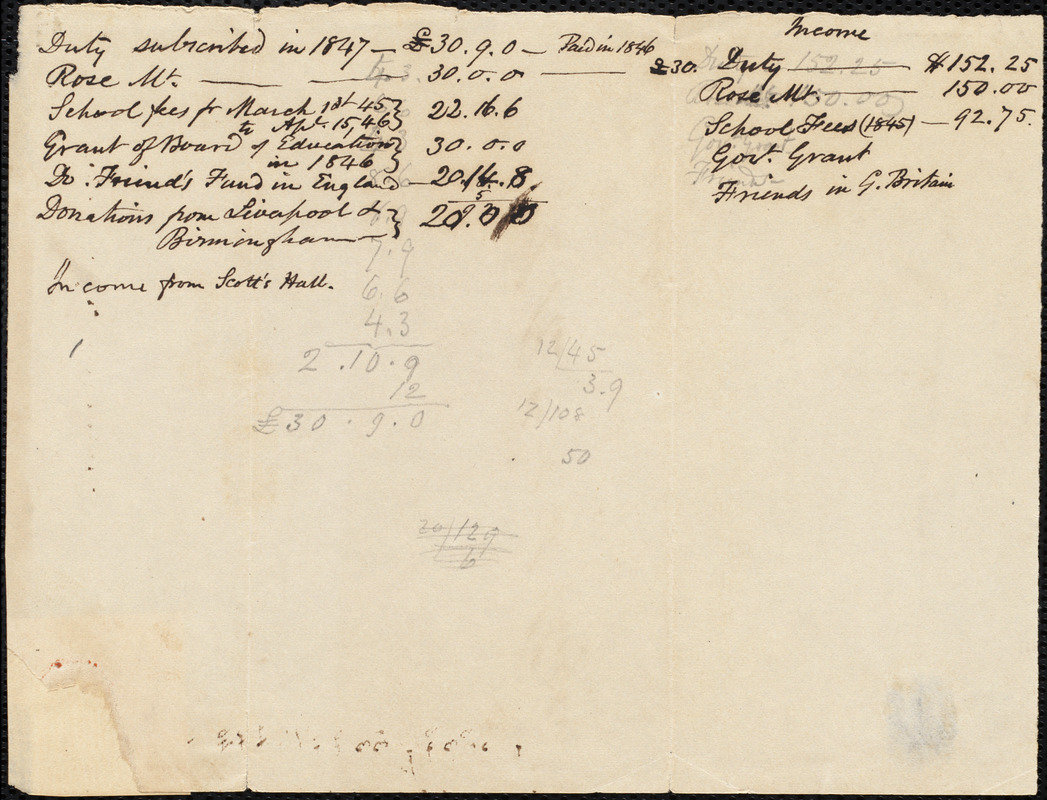 Duty subscribed in 1847 — £30.9.0 — Paid in 1846
Rose Mt. — 30.0.0 — £30.
School fees fr March 1st 45
to Apl. 15, 46 } 22.16.6
Grant of Board of Education
in 1846 } 30.0.0
Do. Friend's Fund in England — 20.14.8
Donations from Liverpool &
Birmingham — }
Income from Scott's Hall.
7.9
6.6
4.3
2.10.9
12
£30.9.0
12/45
3.9
12/108
50
20/129
6
Income
Duty — $152.25
Rose Mt. — 150.00
School Fees (1845) — 92.75.
Govt. Grant
Friends in G. Britain